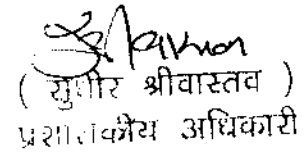 ( सुधीर श्रीवास्तव )
प्रशासकीय अधिकारी